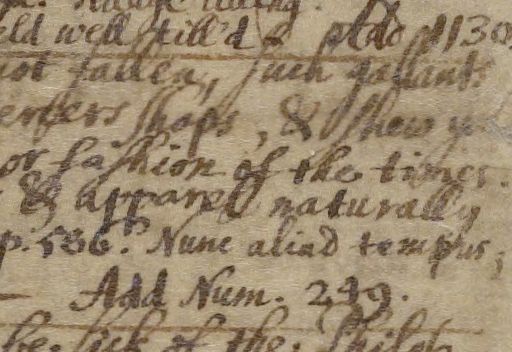 eld well till'd &
not fallen, such gallants
shops, & shew y
or fashion of the times.
& apparel naturally
p. 536. Nunc aliud tempus,
Add Num. 249.
the sick of the Philos